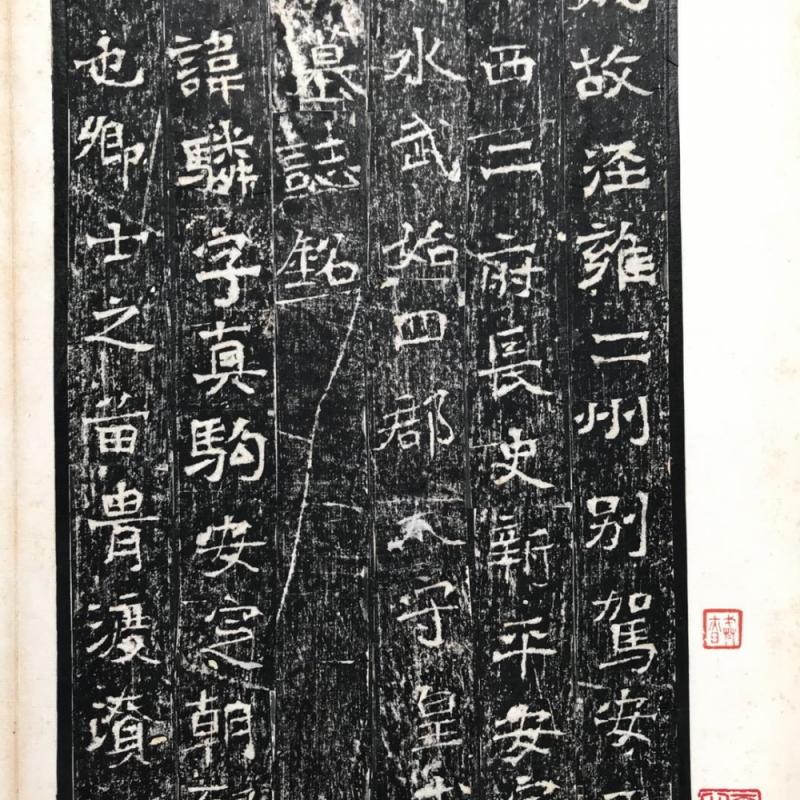 故涇雍二州别駕安
西二府長史新平安
水武始四郡太守皇
墓誌銘
諱驎字真駒安定朝
也卿士之苗胄